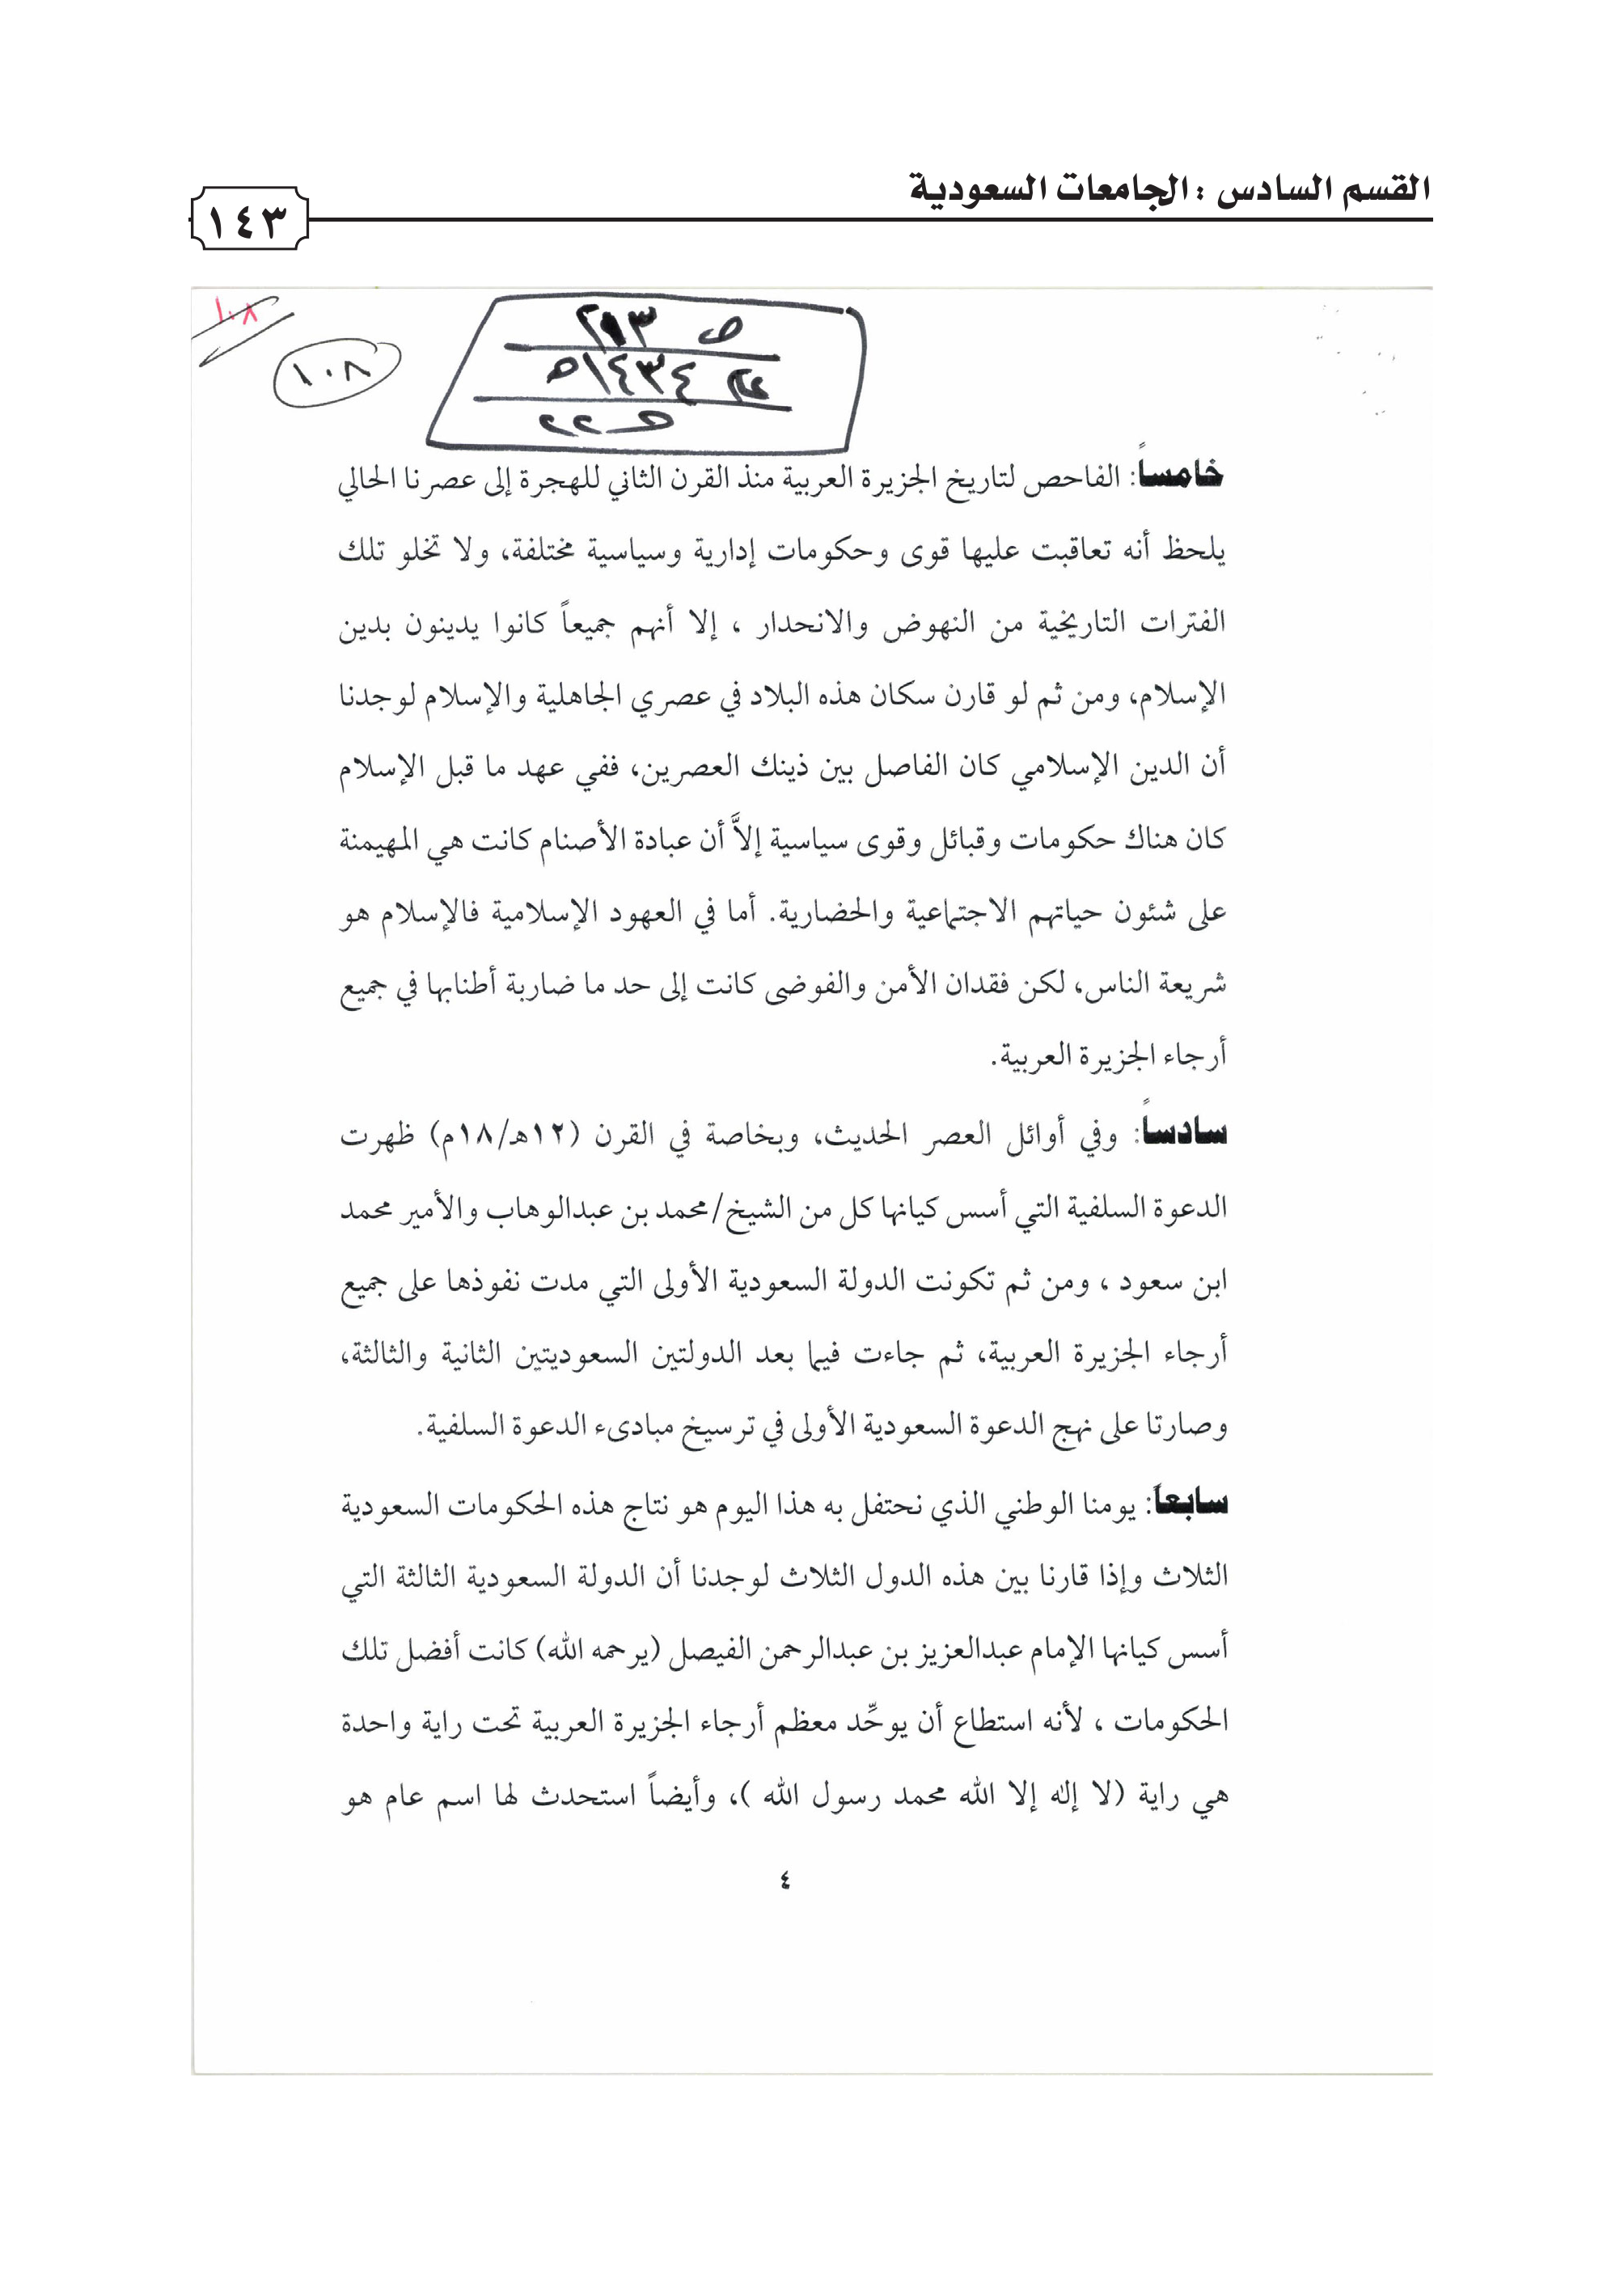 القسم السادس : الجامعات السعودية
١٤٣
١٠٨
١٠٨
ص
١٤٣٤هـ
خامساً: الفاحص لتاريخ الجزيرة العربية منذ القرن الثاني للهجرة إلى عصرنا الحالي
يلحظ أنه تعاقبت عليها قوى وحكومات إدارية وسياسية مختلفة، ولا تخلو تلك
الفترات التاريخية من النهوض والانحدار ، إلا أنهم جميعاً كانوا يدينون بدين
الإسلام، ومن ثم لو قارن سكان هذه البلاد في عصري الجاهلية والإسلام لوجدنا
أن الدين الإسلامي كان الفاصل بين ذينك العصرين، ففي عهد ما قبل الإسلام
كان هناك حكومات وقبائل وقوى سياسية إلاَّ أن عبادة الأصنام كانت هي المهيمنة
على شئون حياتهم الاجتماعية والحضارية. أما في العهود الإسلامية فالإسلام هو
شريعة الناس، لكن فقدان الأمن والفوضى كانت إلى حد ما ضاربة أطنابها في جميع
أرجاء الجزيرة العربية.
سادساً: وفي أوائل العصر الحديث، وبخاصة في القرن (١٢هـ/١٨م) ظهرت
الدعوة السلفية التي أسس كيانها كل من الشيخ/محمد بن عبدالوهاب والأمير محمد
ابن سعود ، ومن ثم تكونت الدولة السعودية الأولى التي مدت نفوذها على جميع
أرجاء الجزيرة العربية، ثم جاءت فيما بعد الدولتين السعوديتين الثانية والثالثة،
وصارتا على نهج الدعوة السعودية الأولى في ترسيخ مبادىء الدعوة السلفية.
سابعاً: يومنا الوطني الذي نحتفل به هذا اليوم هو نتاج هذه الحكومات السعودية
الثلاث وإذا قارنا بين هذه الدول الثلاث لوجدنا أن الدولة السعودية الثالثة التي
أسس كيانها الإمام عبدالعزيز بن عبدالرحمن الفيصل (يرحمه الله) كانت أفضل تلك
الحكومات ، لأنه استطاع أن يوحِّد معظم أرجاء الجزيرة العربية تحت راية واحدة
هي راية (لا إله إلا الله محمد رسول الله )، وأيضاً استحدث لها اسم عام هو
٤